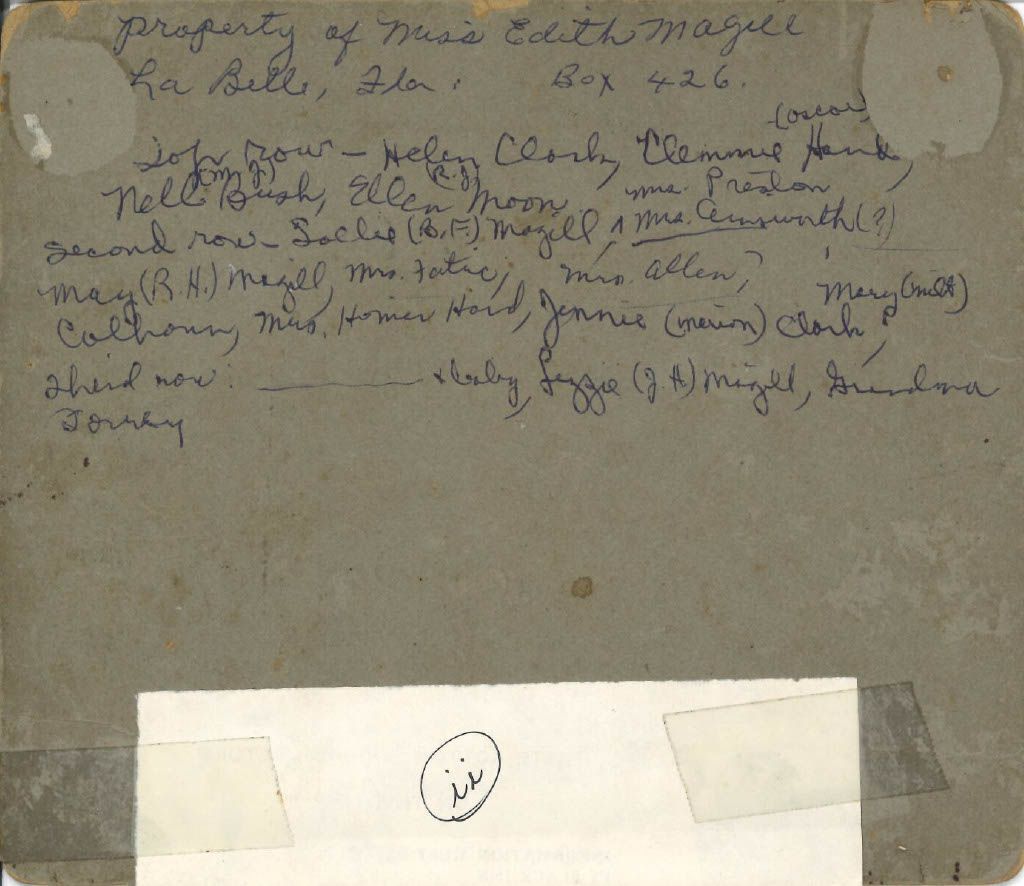 property of Miss Edith Magill
La Belle, Fla. Box 426.
(Oscar)
Top row - Helen Clark, Clemmie Hand,
(M. J.) (R. J.)
Nell Bush, Ellen Moon Mrs. Preston
second row - Sallie (B. F.) Magill, ^ Mrs. Ainsworth (?)
May (R. H.) Magill, Mrs. Mrs. Allen, ?
Mary (Milt)
Calhoun, Mrs. Homer Hand, Jennie (Marion) Clark,
Third row: ________ & baby, Lizzie (J. A.) Magill, Grandma
Torrey
ii